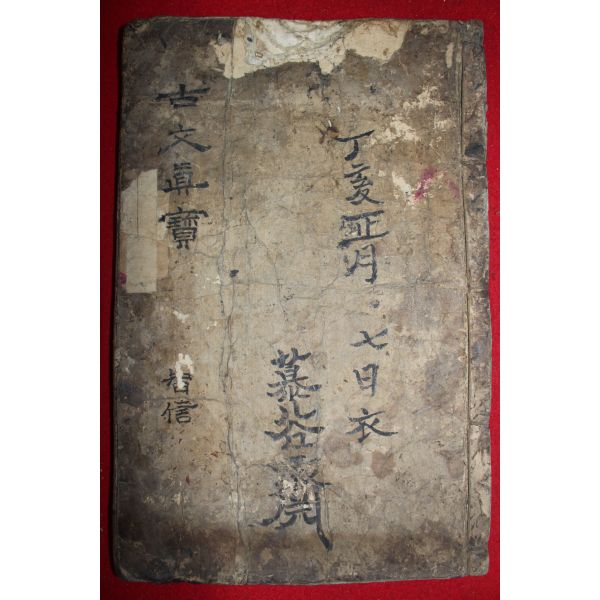 丁亥正月七日衣
慕谷齋
古文眞寶
信